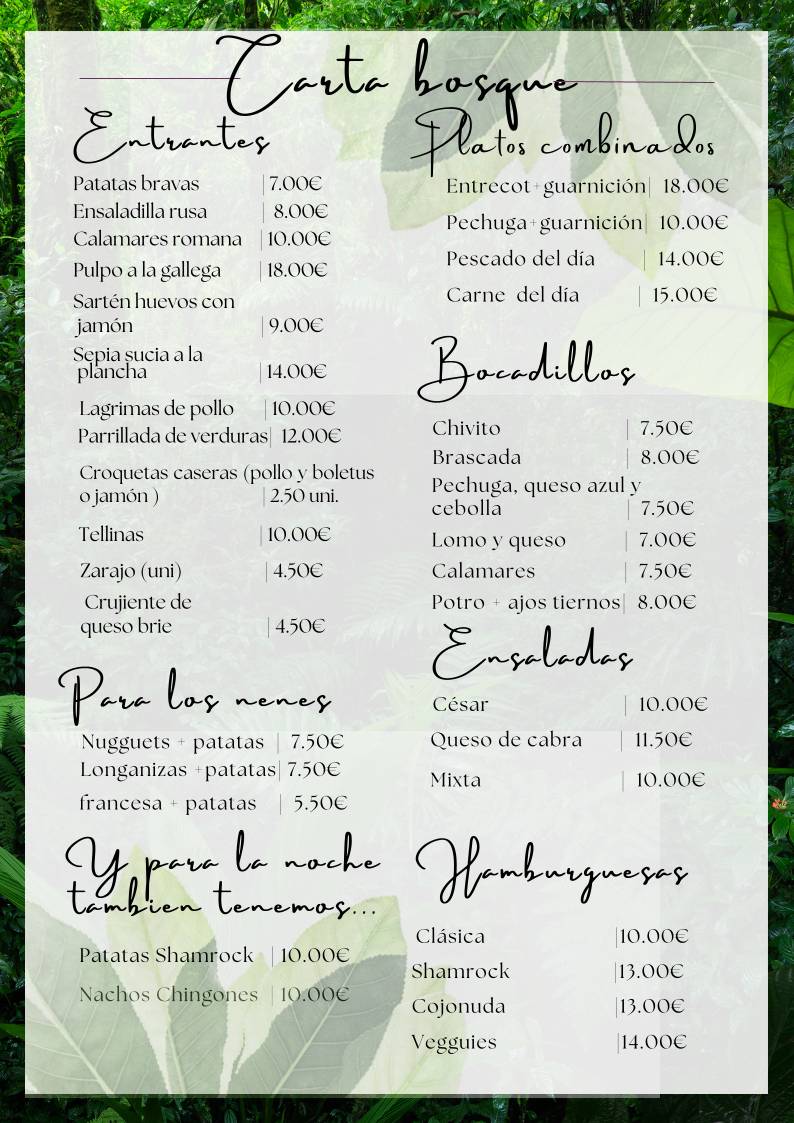 Carta bosque
Entrantes
Patatas bravas | 7.00€
Ensaladilla rusa | 8.00€
Calamares romana | 10.00€
Pulpo a la gallega | 18.00€
Sartén huevos con
jamón | 9.00€
Sepia sucia a la
plancha | 14.00€
Lagrimas de pollo | 10.00€
Parrillada de verduras| 12.00€
Croquetas caseras (pollo y boletus
o jamón ) | 2.50 uni.
Tellinas | 10.00€
Zarajo (uni) | 4.50€
Crujiente de
queso brie | 4.50€
Para los nenes
Nugguets + patatas | 7.50€
Longanizas +patatas| 7.50€
francesa + patatas | 5.50€
Y para la noche
tambien tenemos...
Patatas Shamrock | 10.00€
Nachos Chingones | 10.00€
Platos combinados
Entrecot+guarnición| 18.00€
Pechuga+guarnición| 10.00€
Pescado del día | 14.00€
Carne del día | 15.00€
Bocadillos
Chivito | 7.50€
Brascada | 8.00€
Pechuga, queso azul y
cebolla | 7.50€
Lomo y queso | 7.00€
Calamares | 7.50€
Potro + ajos tiernos| 8.00€
Ensaladas
César | 10.00€
Queso de cabra | 11.50€
Mixta | 10.00€
Hamburguesas
Clásica |10.00€
Shamrock |13.00€
Cojonuda |13.00€
Vegguies |14.00€